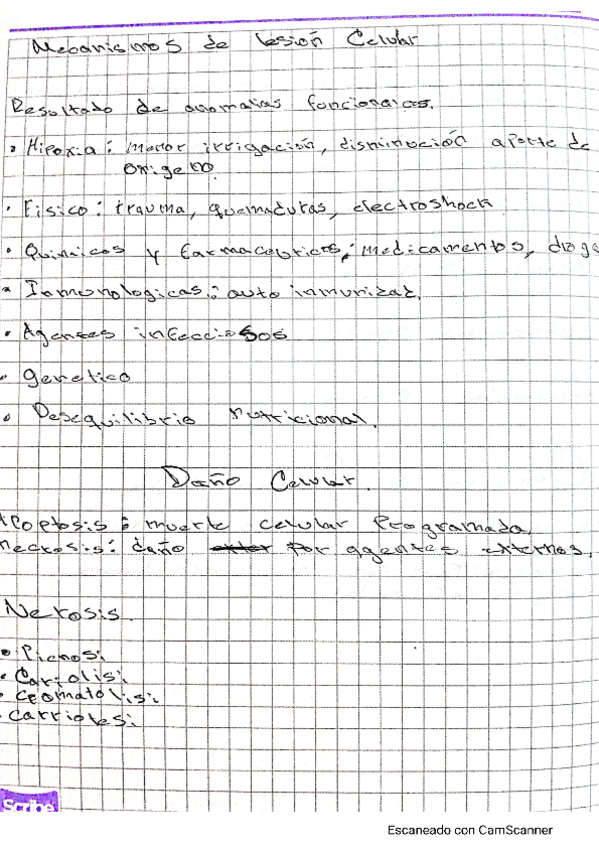 Mecanismos de lesión Celular
Resultado de anomalias funcionales.
• Hipoxia: menor irrigación, disminución aporte de
oxigeno.
• Fisico: trauma, quemaduras, electroshock
• Quimicos y Farmaceuticos: medicamentos, droga
• Inmunologicas: auto inmunizaz.
• Agentes infecciosos
• genetico
• Desequilibrio nutricional.
Daño Celular.
Apoptosis: muerte celular Programada
necrosis: daño por agentes externos.
Necrosis.
• Picnosi
• Cariolisi
• Cromatolisi
Scribe
Escaneado con CamScanner